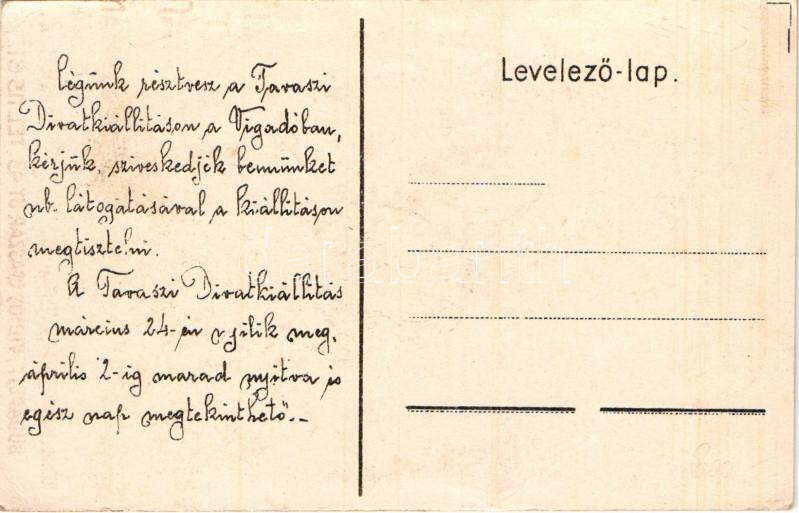 Cégünk résztvesz a Tavaszi
Divatkiállitáson a Vigadóban,
kérjük, sziveskedjék bennünket
nb. látogatásával a kiállitáson
megtisztelni.
A Tavaszi Divatkiállitás
március 24-én nyilik meg,
április 2-ig marad nyitva és
egész nap megtekinthető.-
Levelező-lap.
darabanth